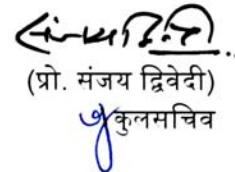 (प्रो. संजय द्विवेदी)
कुलसचिव